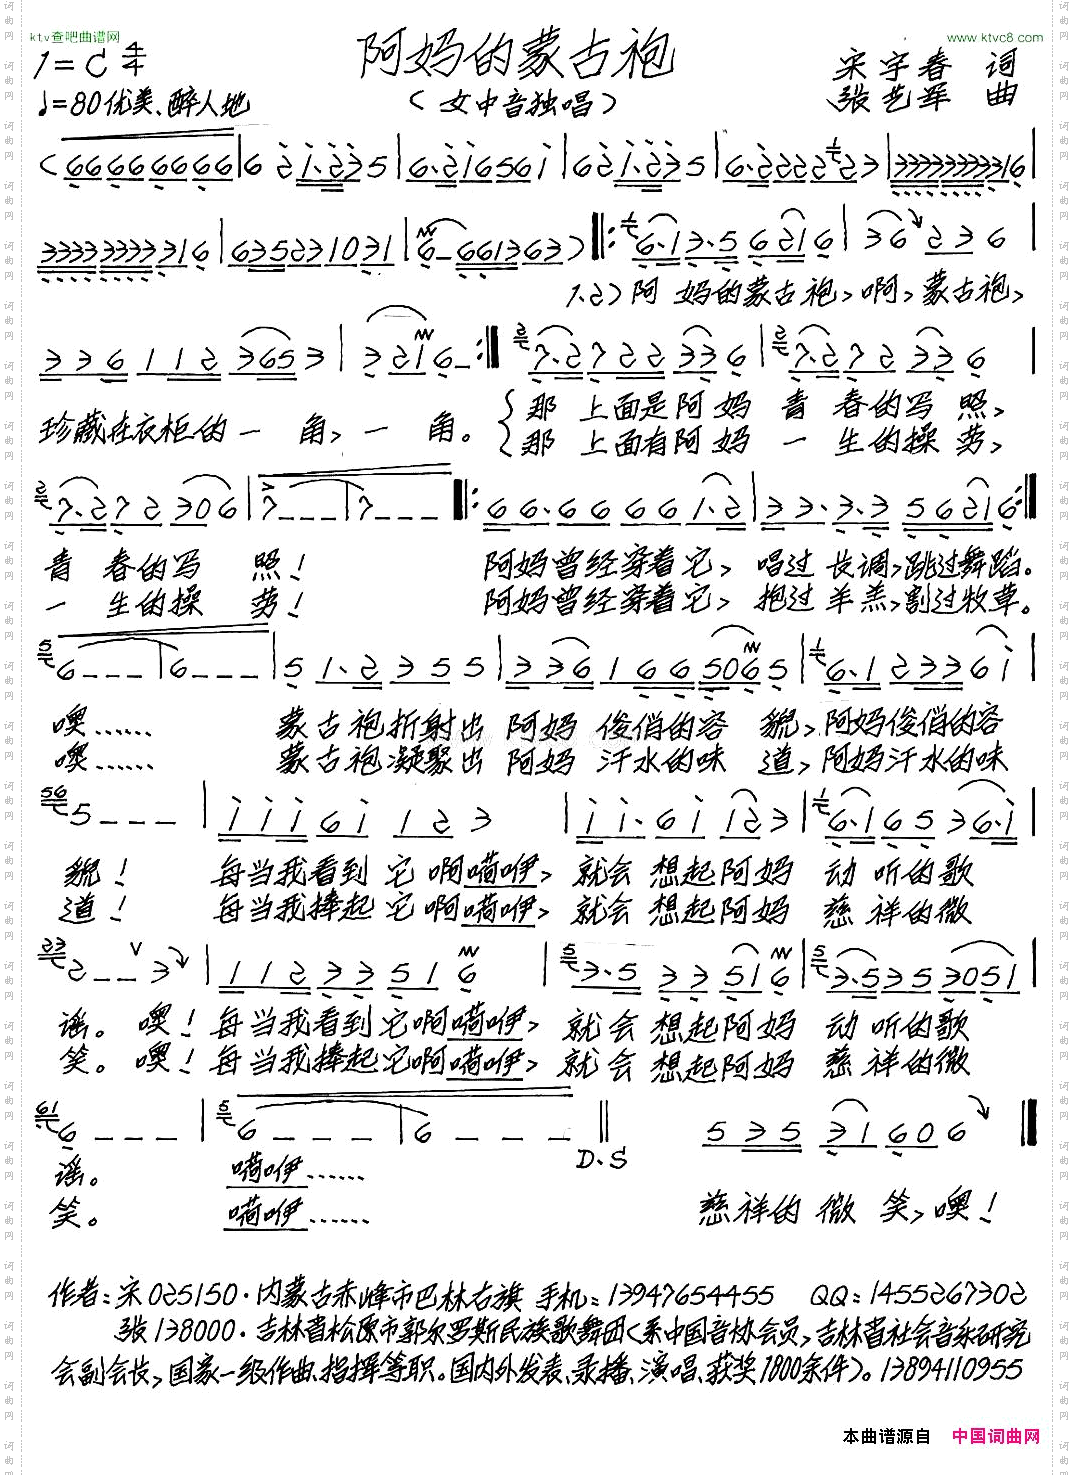 ktv查吧曲谱网
www.ktvc8.com
阿妈的蒙古袍
1=C 4/4
宋宇春 词
♩=80 优美、醉人地
(女中音独唱)
张艺军 曲
1.2) 阿妈的蒙古袍, 啊, 蒙古袍,
珍藏在衣柜的一角, 一角。
那上面是阿妈青春的写照,
那上面有阿妈一生的操劳,
青春的写照! 阿妈曾经穿着它, 唱过长调, 跳过舞蹈。
一生的操劳! 阿妈曾经穿着它, 抱过羊羔, 割过牧草。
噢…… 蒙古袍折射出阿妈俊俏的容貌, 阿妈俊俏的容
噢…… 蒙古袍凝聚出阿妈汗水的味道, 阿妈汗水的味
貌! 每当我看到它啊嗬咿, 就会想起阿妈动听的歌
道! 每当我捧起它啊嗬咿, 就会想起阿妈慈祥的微
谣。噢! 每当我看到它啊嗬咿, 就会想起阿妈动听的歌
笑。噢! 每当我捧起它啊嗬咿, 就会想起阿妈慈祥的微
D.S
谣。 嗬咿……
笑。 嗬咿…… 慈祥的微笑, 噢!
作者:宋 025150·内蒙古赤峰市巴林右旗 手机:13947654455 QQ:1455267302
张 138000·吉林省松原市郭尔罗斯民族歌舞团(系中国音协会员,吉林省社会音乐研究
会副会长,国家一级作曲、指挥等职。国内外发表、录播、演唱、获奖1800余件)。13894110955
本曲谱源自 中国词曲网